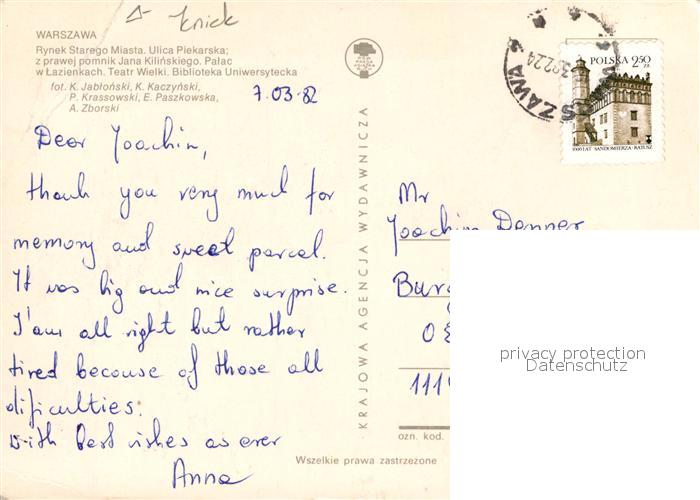 Knick
WARSZAWA
Rynek Starego Miasta. Ulica Piekarska;
z prawej pomnik Jana Kilińskiego. Pałac
w Łazienkach. Teatr Wielki. Biblioteka Uniwersytecka
fot. K. Jabłoński, K. Kaczyński,
P. Krassowski, E. Paszkowska,
A. Zborski
7.03.82
Dear Joachim,
thank you very much for
memory and sweet parcel.
It was big and nice surprise.
I'am all right but rather
tired because of those all
dificulties.
with best vishes as ever
Anna
KRAJOWA AGENCJA WYDAWNICZA
WARSZAWA
POLSKA 250
ZŁ
1000 LAT SANDOMIERZA - RATUSZ
Mr
Joachim Denner
Burg
111
privacy protection
Datenschutz
ozn. kod.
Wszelkie prawa zastrzeżone